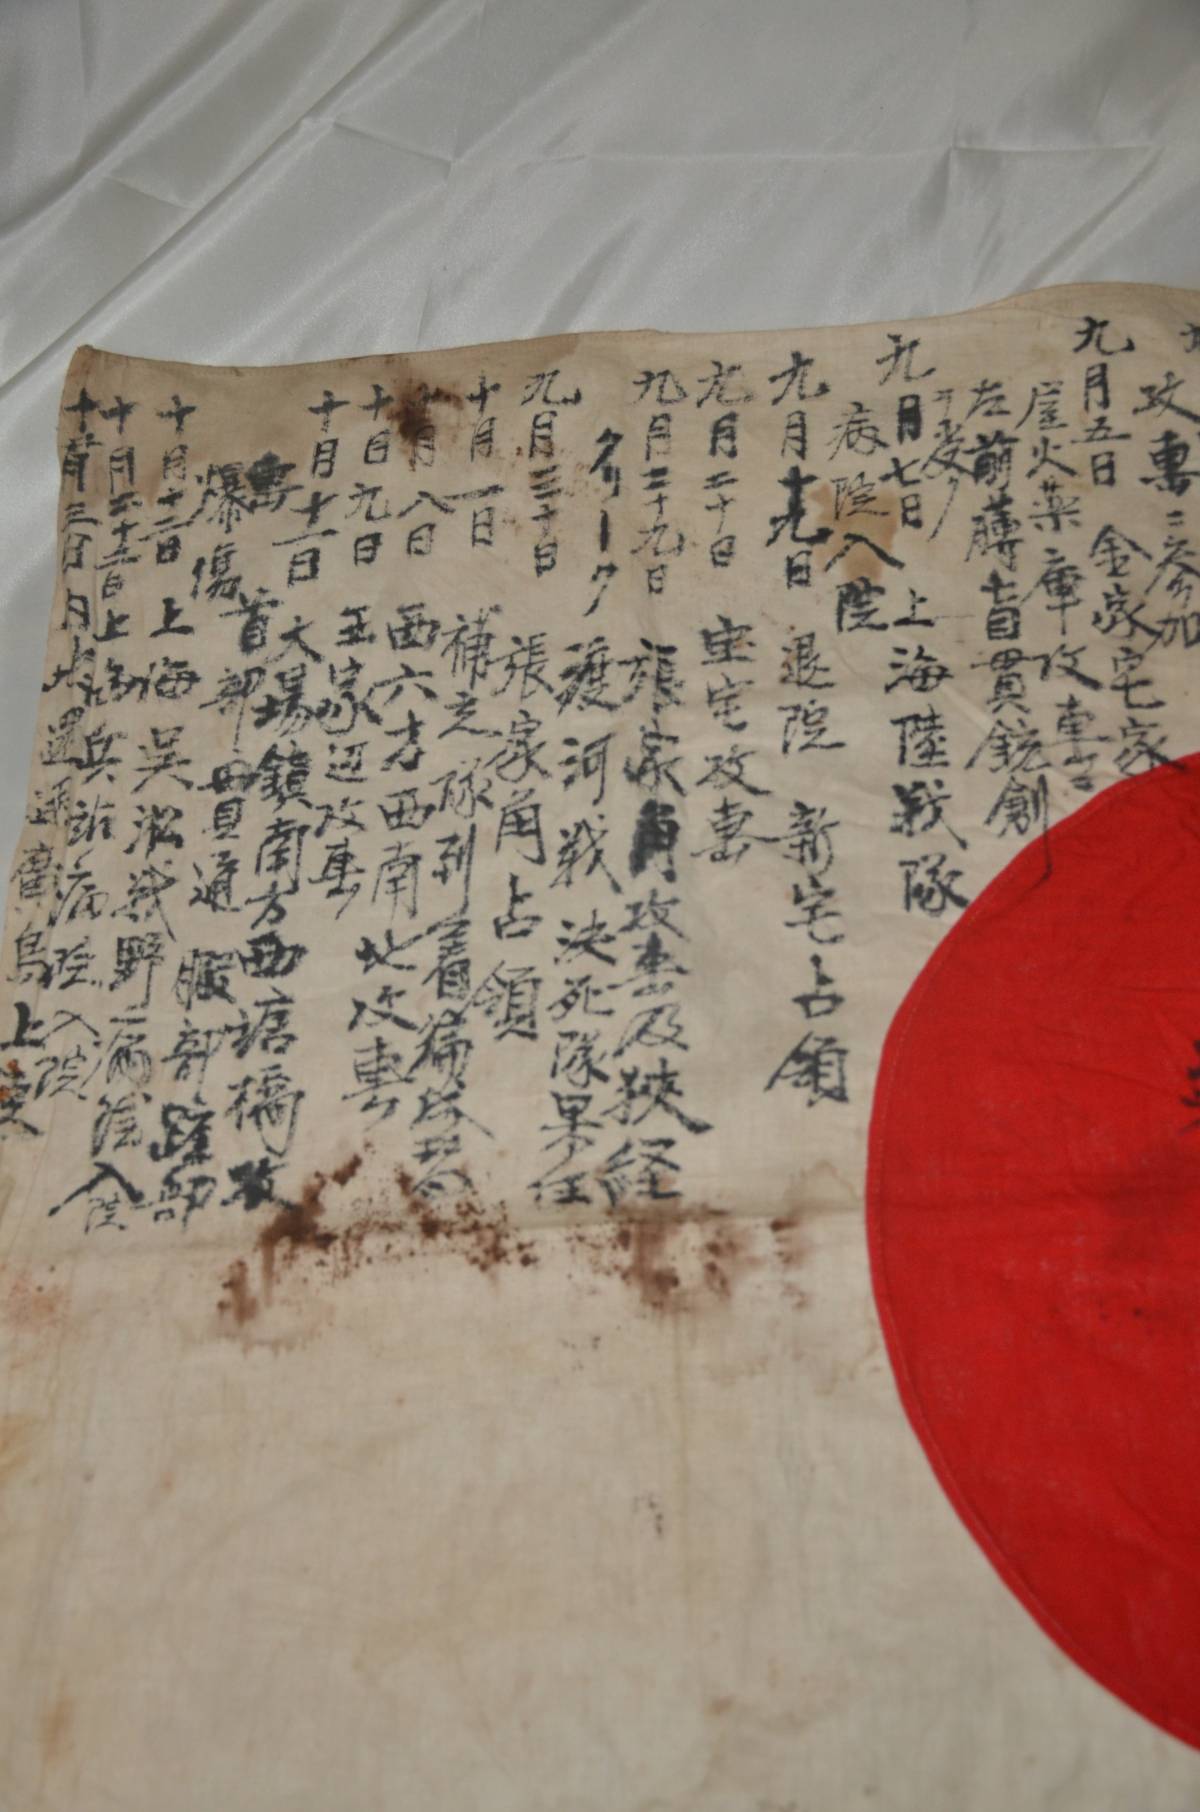 攻撃ニ参加
九月五日 金家宅家
屋火薬庫攻撃ニ
左前膊盲貫銃創
ヲ受ク
九月七日 上海陸戦隊
病院入院
九月十九日 退院 新宅占領
九月二十日 宅攻撃
九月二十九日 張家角攻撃及狭経
クリーク 渡河戦 決死隊果任
九月三十日 張家角占領
十月一日 補充隊到着
十月八日 西六才西南地攻撃
十月九日 王家辺攻撃
十月十一日 大場鎮南方西塘橋攻
撃 首部貫通 腿部蹠部
爆傷
十月十二日 上海呉淞戦野病院入院
十月二十二日 上海兵站病院入院
十一月三日 上陸